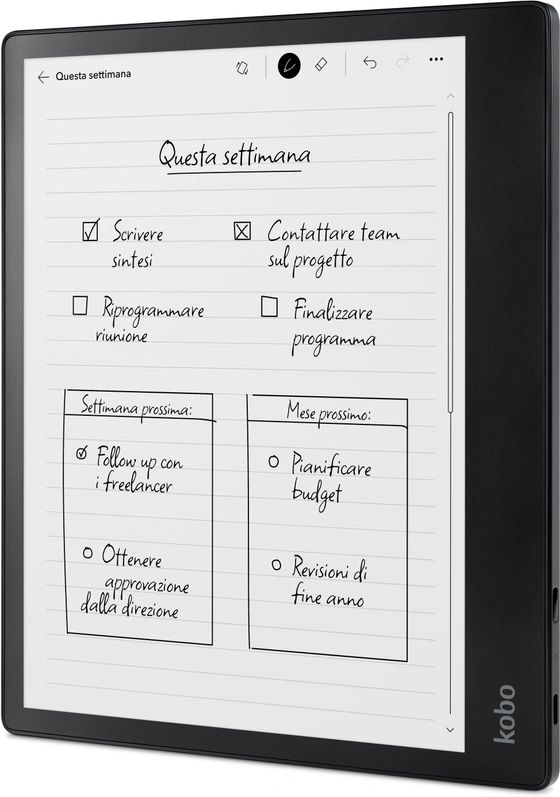 Questa settimana
Questa settimana
Scrivere
sintesi
Contattare team
sul progetto
Riprogrammare
riunione
Finalizzare
programma
Settimana prossima:
Follow up con
i freelancer
Ottenere
approvazione
dalla direzione
Mese prossimo:
Pianificare
budget
Revisioni di
fine anno
kobo